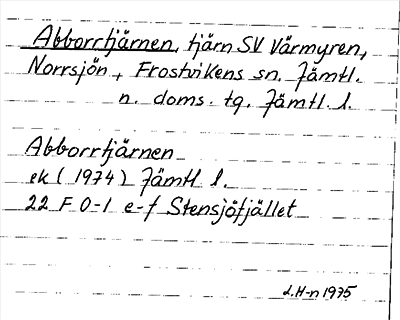 Abborrtjärnen, tjärn SV Värmyren,
Norrsjön, Frostvikens sn. Jämtl.
n. doms. tg. Jämtl. l.
Abborrtjärnen
ek (1974) Jämtl l.
22 F 0-1 e-f Stensjöfjället
L.H-n 1975